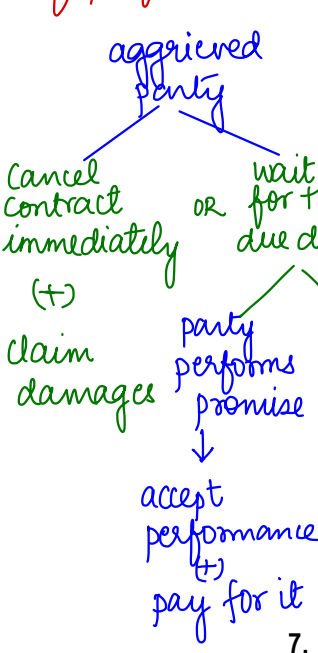 aggrieved
party
cancel
contract
immediately
(+)
claim
damages
OR
wait
for t
due d
party
performs
promise
accept
performance
(+)
pay for it
7.